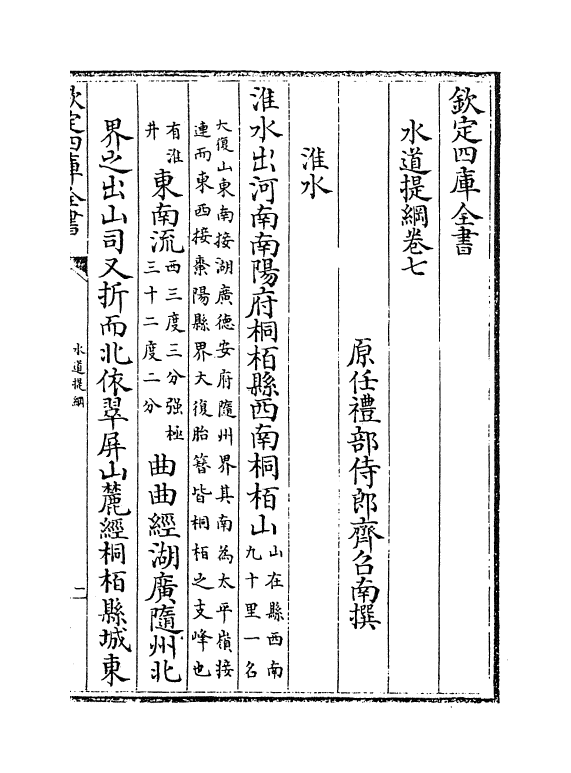 欽定四庫全書
水道提綱卷七
原任禮部侍郎齊召南撰
淮水
淮水出河南南陽府桐栢縣西南桐栢山山在縣西南九十里一名
大復山東南接湖廣德安府隨州界其南為太平嶺接
連而東西接棗陽縣界大復胎簪皆桐栢之支峰也
有淮井東南流西三度三分强極三十二度二分曲曲經湖廣隨州北
界之出山司又折而北依翠屏山麓經桐栢縣城東
欽定四庫全書
水道提綱